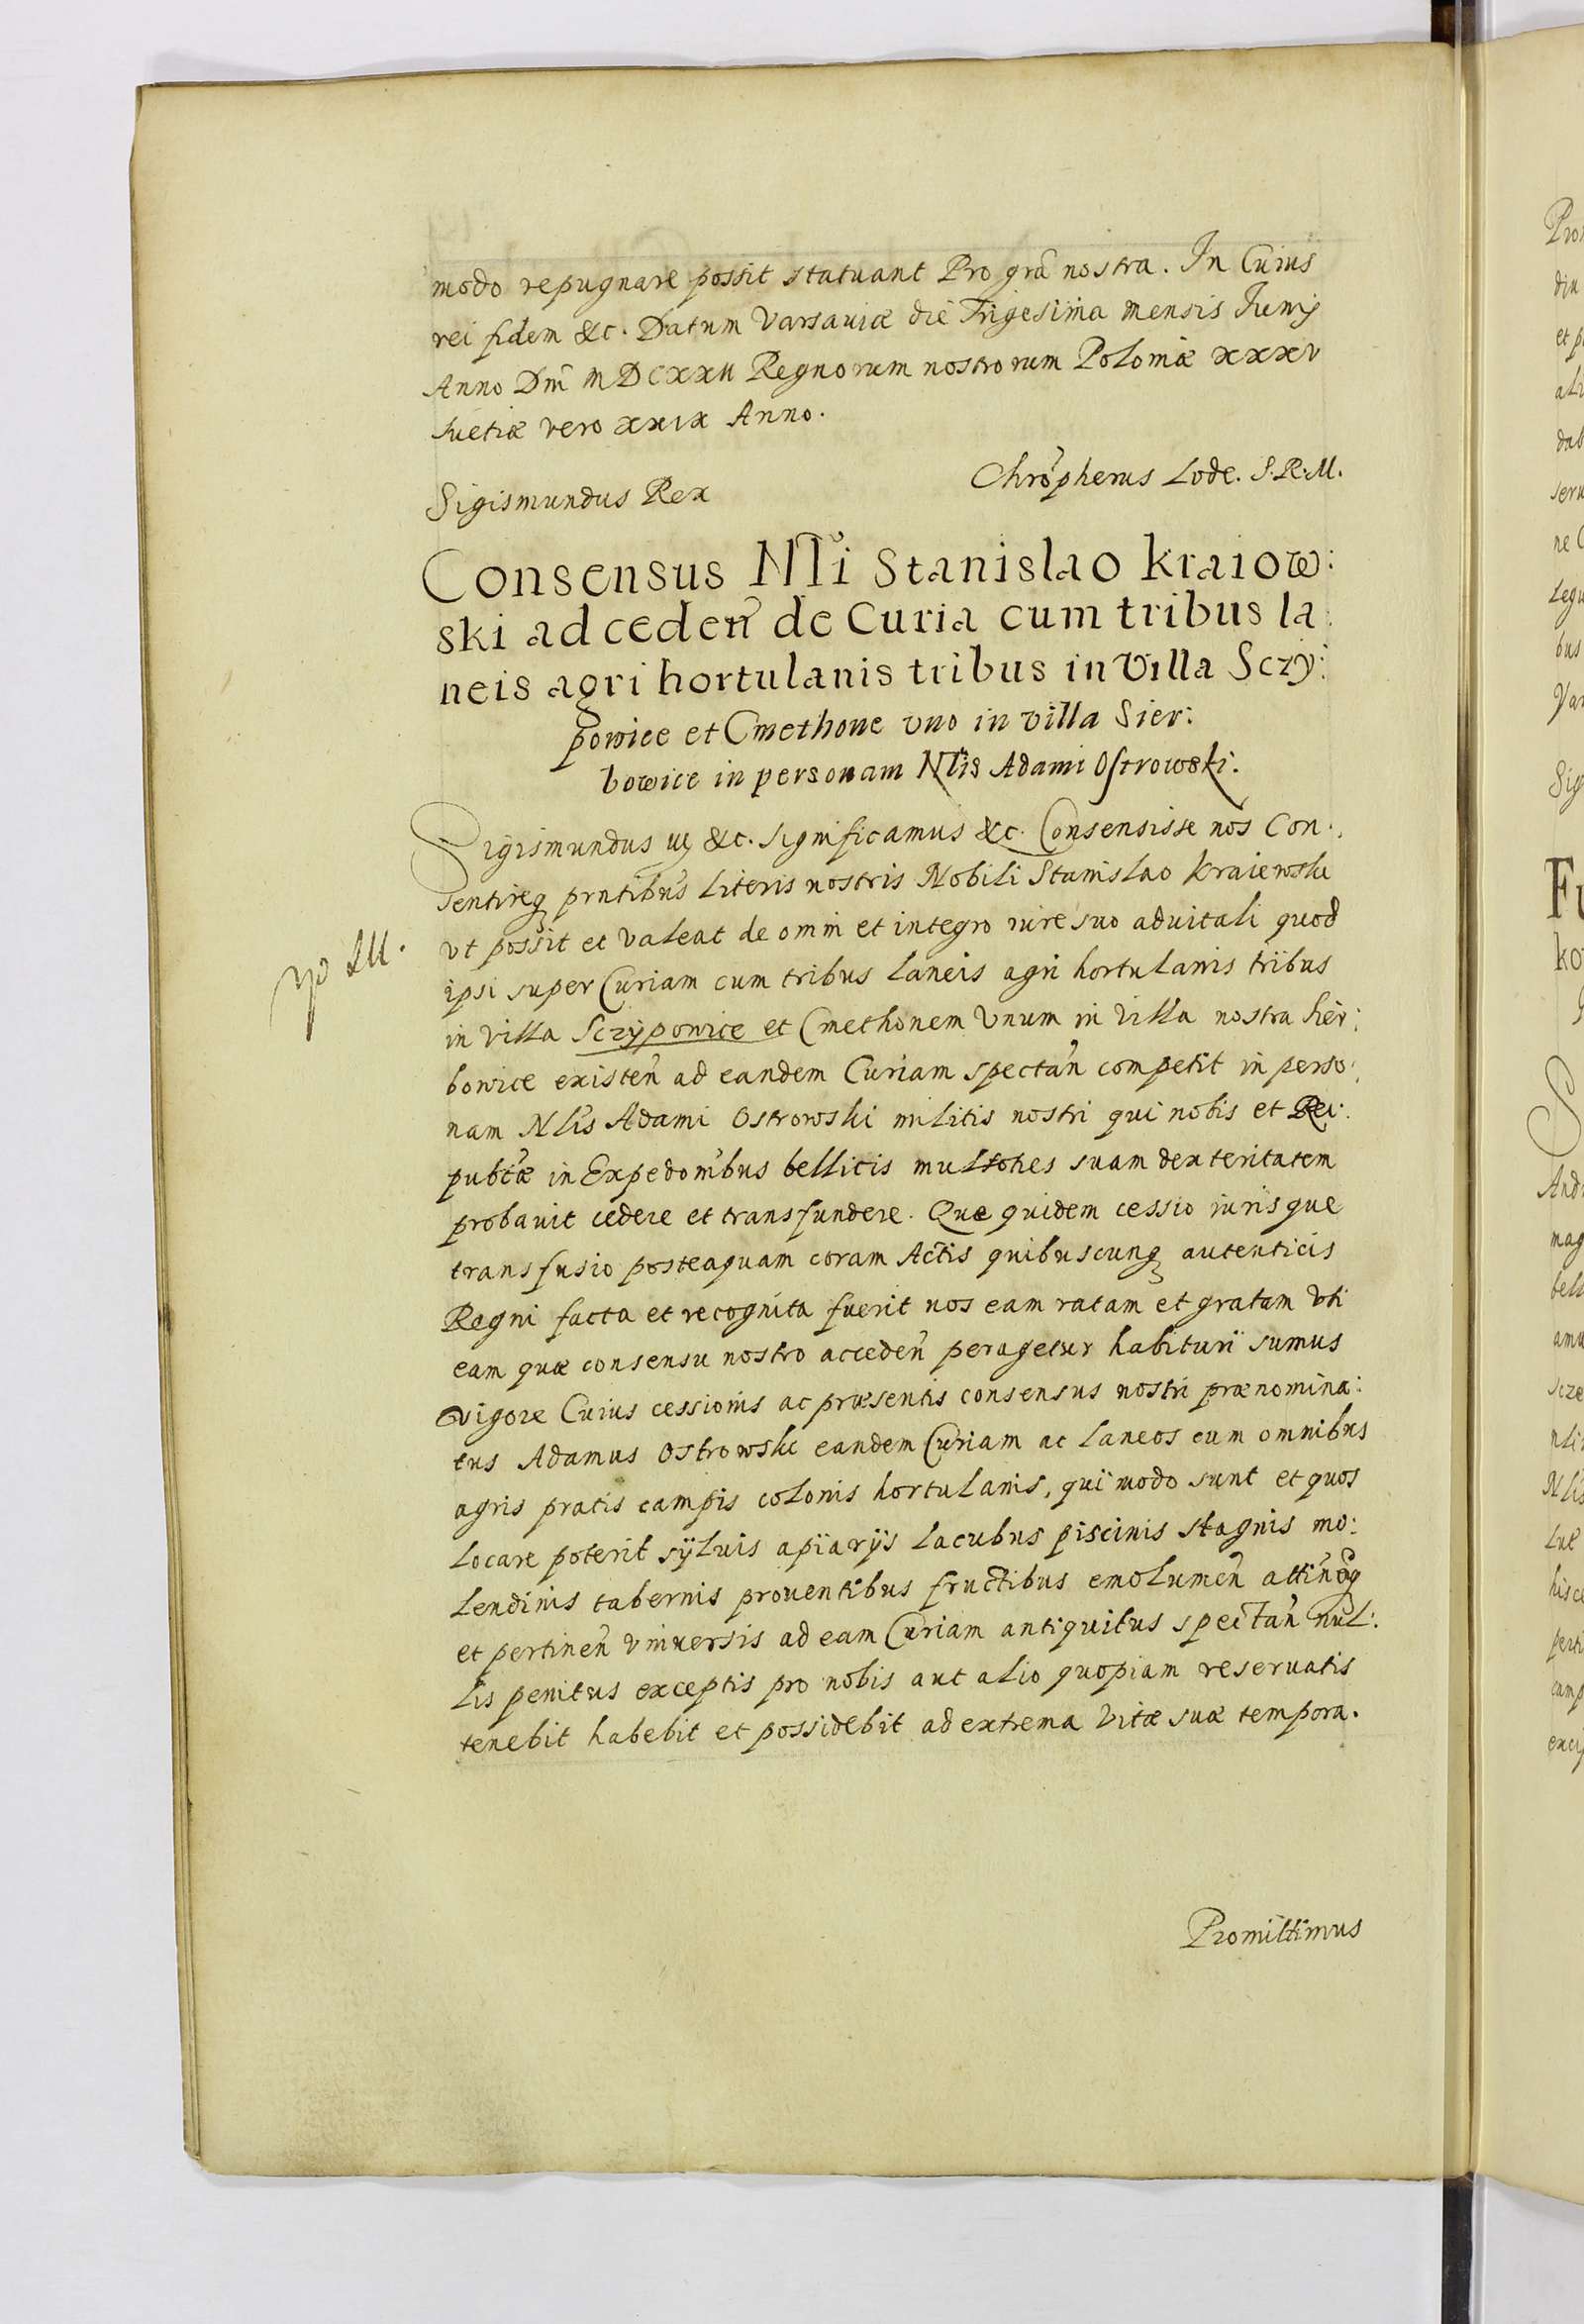 modo repugnare possit statuant Pro grã nostra. In Cuius
rei fidem &c. Datum Varsauiæ die Trigesima mensis Iunij
Anno Dni MDCXXII Regnorum nostrorum Poloniæ xxxv
suetiæ vero xxix Anno.
Sigismundus Rex
Chrõpherus Lode. S.R.M.
Consensus Nli Stanislao kraiow:
ski ad ceden de Curia cum tribus la:
neis agri hortulanis tribus in Villa Sczy:
powice et Cmethone vno in villa Sier:
bowice in personam Nlis Adami Ostrowski.
Sigismundus iij &c. significamus &c. Consensisse nos Con:
sentireq prntibus literis nostris Nobili Stanislao Kraiewski
vt possit et valeat de omni et integro iure suo aduitali quod
ipsi super Curiam cum tribus laneis agri hortulanis tribus
in villa Sczypowice et Cmethonem Vnum in Villa nostra sier:
bowice existen ad eandem Curiam spectan competit in perso:
nam Nlis Adami Ostrowski militis nostri qui nobis et Rei:
publæ in Expedonibus bellicis multoties suam dexteritatem
probauit cedere et transfundere. Quæ quidem cessio iurisque
transfusio posteaquam coram Actis quibuscunq autenticis
Regni facta et recognita fuerit nos eam ratam et gratam vti
eam quæ consensu nostro acceden peragetur habituri sumus
vigore Cuius cessionis ac præsentis consensus nostri prænomina:
tus Adamus Ostrowski eandem Curiam ac laneos cum omnibus
agris pratis campis colonis hortulanis, qui modo sunt et quos
locare poterit syluis apiarijs lacubus piscinis stagnis mo:
lendinis tabernis prouentibus fructibus emolumen attinen
et pertinen vniuersis ad eam Curiam antiquitus spectan nul:
lis penitus exceptis pro nobis aut alio quopiam reseruatis
tenebit habebit et possidebit ad extrema vitæ suæ tempora.
Promittimus